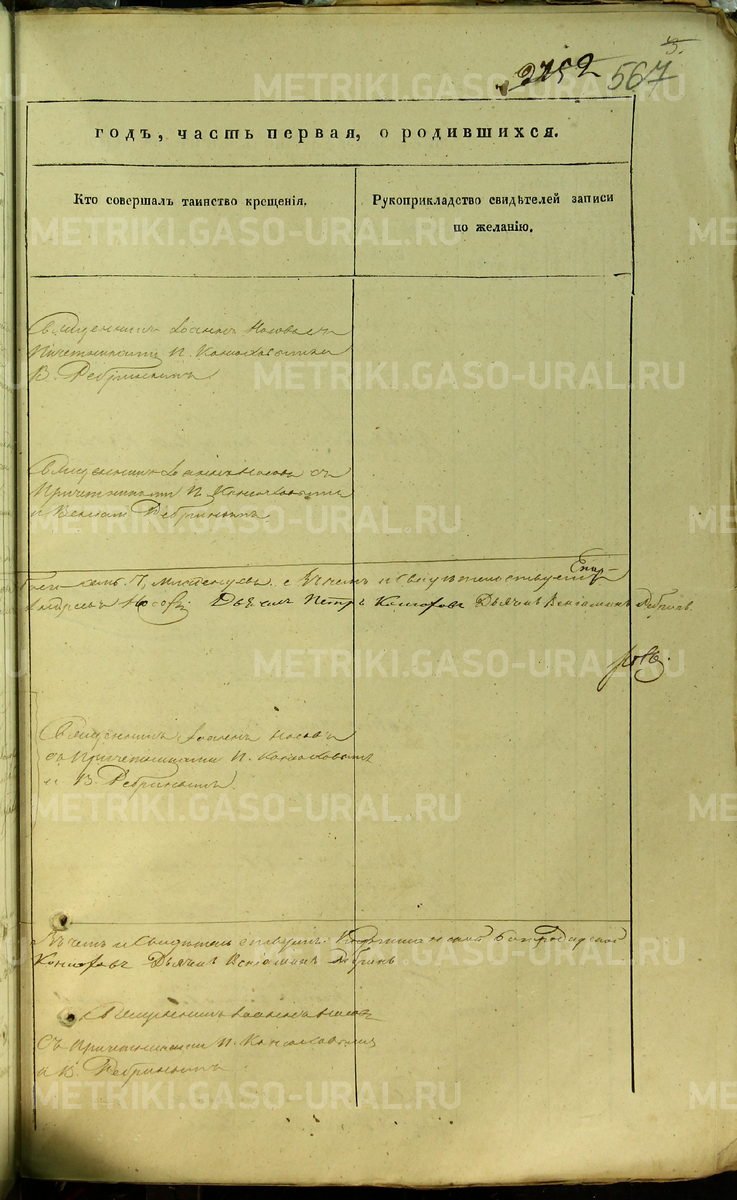 3.
2752 567
годъ, часть первая, о родившихся.
Кто совершалъ таинство крещенія.
Рукоприкладство свидѣтелей записи
по желанію.
Священникъ Іоаннъ Носовъ съ
Причетниками П. Конюховымъ
В. Ребринымъ
Священникъ Іоаннъ Носовъ съ
Причетниками П. Конюховымъ
и Веніам Ребринымъ
семь. 7, и свидѣтельствуетъ
Носовъ. Дьячекъ Петръ Конюховъ Дьячекъ Веніаминъ Ребринъ.
Священникъ Іоаннъ Носовъ
съ Причетниками П. Конюховымъ
и В. Ребринымъ.
и
Конюховъ Дьячекъ Веніаминъ Ребринъ
Священникъ Іоаннъ Носовъ
Съ Причетниками П. Конюховымъ
и В. Ребринымъ
METRIKI.GASO-URAL.RU